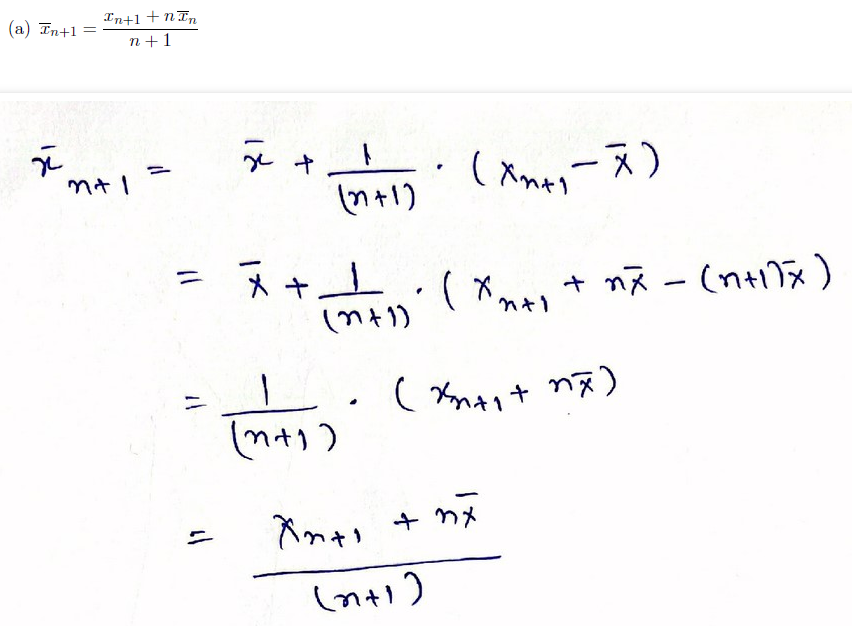 (a) x̄ₙ₊₁ = (xₙ₊₁ + n x̄ₙ)/(n + 1)
x̄ₙ₊₁ = x̄ + 1/(n+1) · (xₙ₊₁ − x̄)
= x̄ + 1/(n+1) · (xₙ₊₁ + nx̄ − (n+1)x̄)
= 1/(n+1) · (xₙ₊₁ + nx̄)
= (xₙ₊₁ + nx̄)/(n+1)